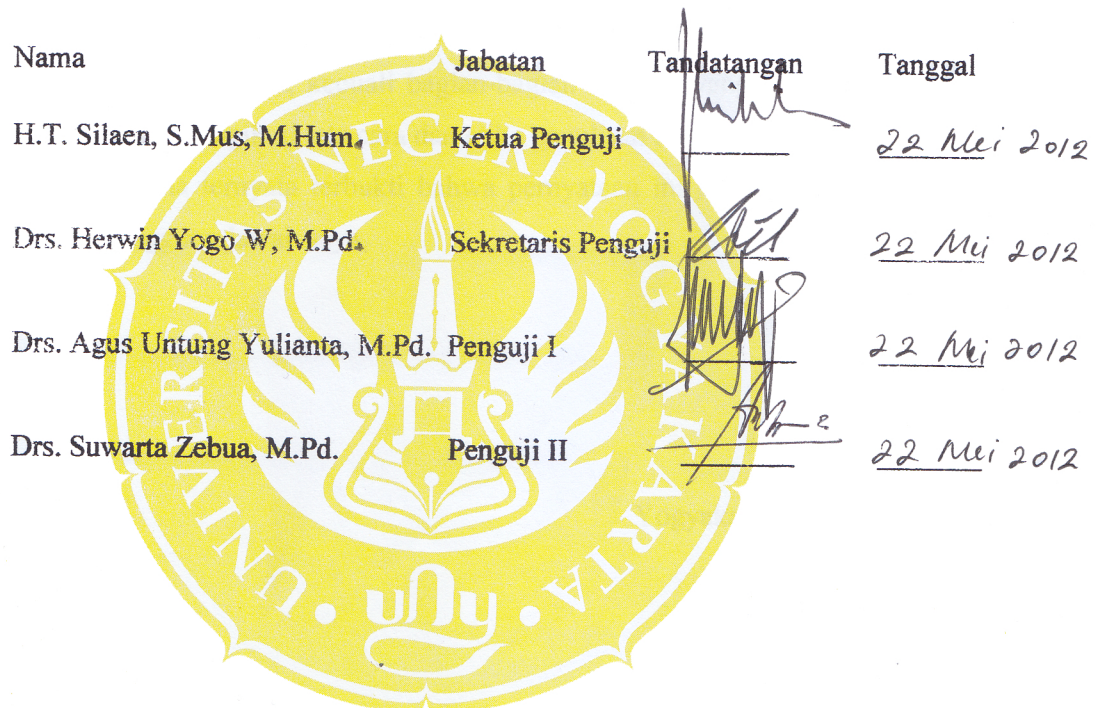 Nama Jabatan Tandatangan Tanggal
H.T. Silaen, S.Mus, M.Hum. Ketua Penguji 22 Mei 2012
Drs. Herwin Yogo W, M.Pd. Sekretaris Penguji 22 Mei 2012
Drs. Agus Untung Yulianta, M.Pd. Penguji I 22 Mei 2012
Drs. Suwarta Zebua, M.Pd. Penguji II 22 Mei 2012
UNIVERSITAS NEGERI YOGYAKARTA
uny